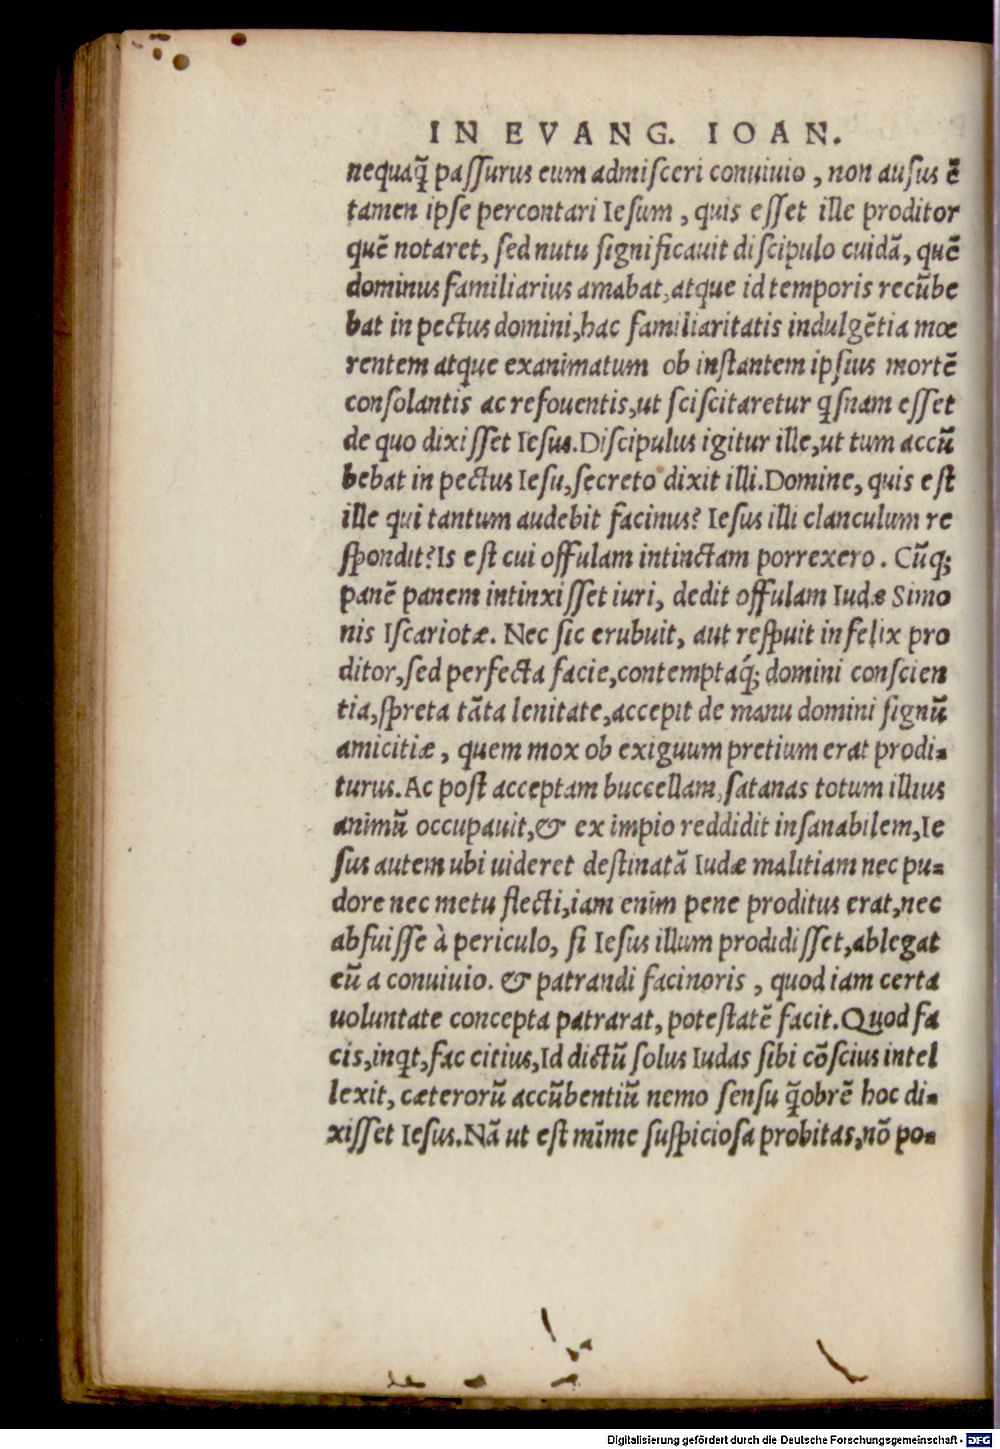 IN EVANG. IOAN.
nequaq̃ passurus eum admisceri conuiuio, non ausus ẽ
tamen ipse percontari Iesum, quis esset ille proditor
quẽ notaret, sed nutu significauit discipulo cuidã, quẽ
dominus familiarius amabat, atque id temporis recũbe
bat in pectus domini, hac familiaritatis indulgẽtia mœ
rentem atque exanimatum ob instantem ipsius mortẽ
consolantis ac refouentis, ut sciscitaretur qsnam esset
de quo dixisset Iesus. Discipulus igitur ille, ut tum accũ
bebat in pectus Iesu, secreto dixit illi. Domine, quis est
ille qui tantum audebit facinus? Iesus illi clanculum re
spondit? Is est cui offulam intinctam porrexero. Cũq;
panẽ panem intinxisset iuri, dedit offulam Iudæ Simo
nis Iscariotæ. Nec sic erubuit, aut respuit infelix pro
ditor, sed perfecta facie, contemptaq́; domini conscien
tia, spreta tãta lenitate, accepit de manu domini signũ
amicitiæ, quem mox ob exiguum pretium erat prodi-
turus. Ac post acceptam buccellam, satanas totum illius
animũ occupauit, & ex impio reddidit insanabilem, Ie
sus autem ubi uideret destinatã Iudæ malitiam nec pu-
dore nec metu flecti, iam enim pene proditus erat, nec
abfuisse à periculo, si Iesus illum prodidisset, ablegat
eũ a conuiuio. & patrandi facinoris, quod iam certa
uoluntate concepta patrarat, potestatẽ facit. Quod fa
cis, inqt, fac citius, Id dictũ solus Iudas sibi cõscius intel
lexit, cæterorũ accũbentiũ nemo sensu q̃obrẽ hoc di-
xisset Iesus. Nã ut est mĩme suspiciosa probitas, nõ po-
Digitalisierung gefördert durch die Deutsche Forschungsgemeinschaft - DFG